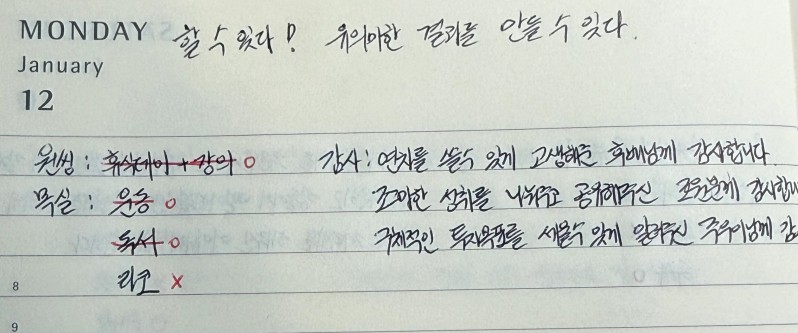 MONDAY 할 수 있다! 유의미한 결과를 만들 수 있다.
January
12
원씽 : 휴식데이 + 강의 O 감사 : 연차를 쓸수 있게 고생해준 후배님께 감사합니다.
목실 : 운동 O 조그마한 성취를 나눠주고 공유해주신 조원분께 감사합니
독서 O 구체적인 투자목표를 세울수 있게 알려주신 주우이님께 감
8 리코 X
9